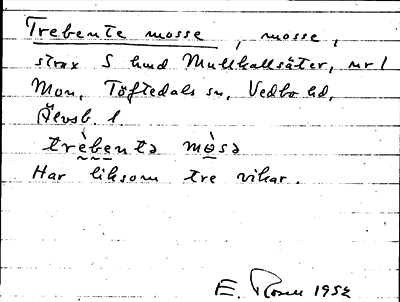 Trebente mosse, mosse,
strax S hmd Mullkallsäter, nr 1
Mon, Töftedals sn, Vedbo hd,
Älvsb. l
trèbentə mòsə
Har liksom tre vikar.
E. Rosen 1952